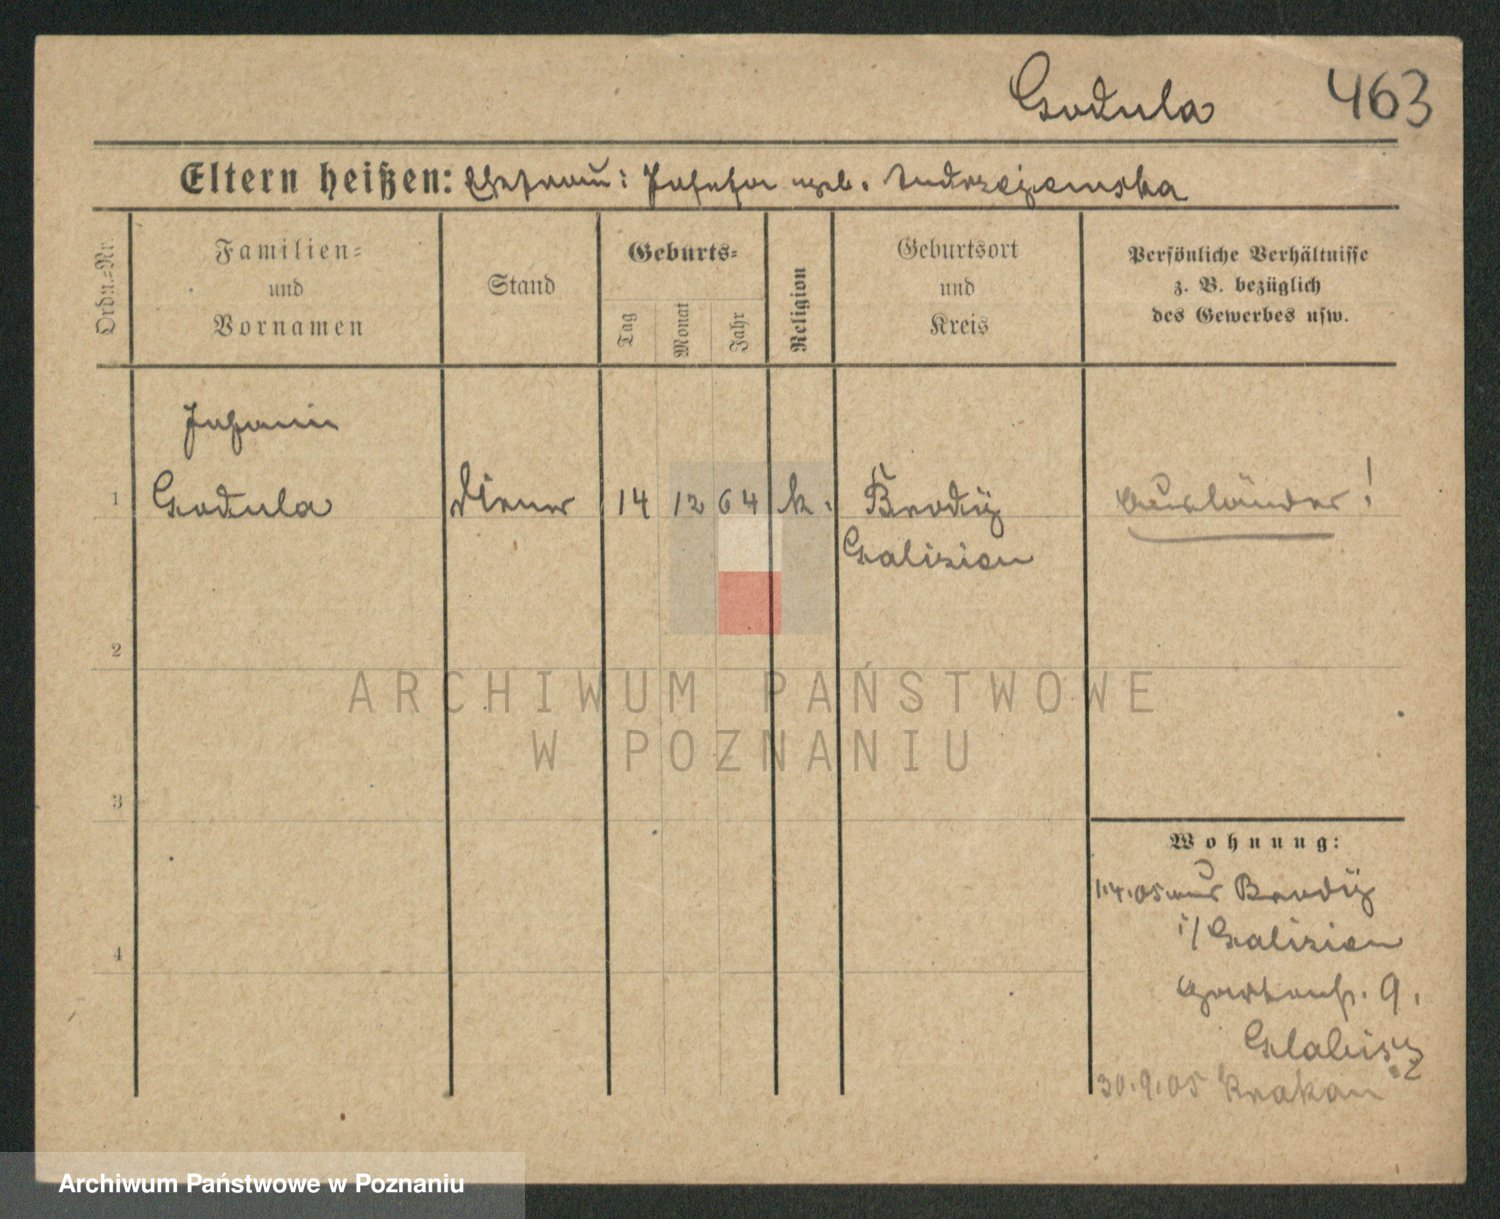 Godula 463
Eltern heißen: Ehefrau: Josefa geb. Andrzejewska
Ordn.-Nr.
Familien-
und
Vornamen
Stand
Geburts-
Tag
Monat
Jahr
Religion
Geburtsort
und
Kreis
Persönliche Verhältnisse
z. B. bezüglich
des Gewerbes usw.
Johann
1 Godula Diener 14 12 64 k. Brody Ausländer!
Galizien
2
ARCHIWUM PAŃSTWOWE
W POZNANIU
3
Wohnung:
1.4.05 aus Brody
i/Galizien
4
Gartenstr. 9.
Glabisz
30.9.05 Krakau
Archiwum Państwowe w Poznaniu